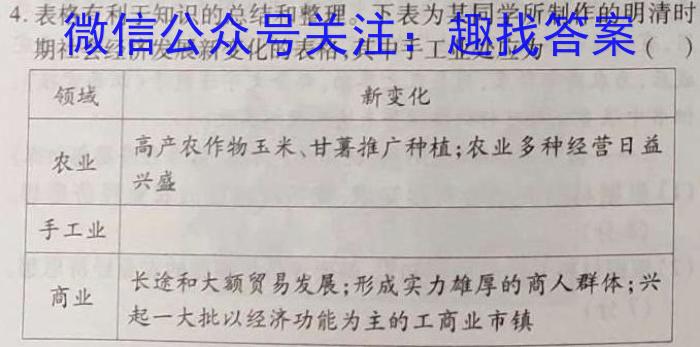 4. 表格有利于知识的总结和整理。下表为某同学所制作的明清时
期社会经济发展新变化的表格,其中手工业处应为 ( )
微信公众号关注：趣找答案
领域 新变化
农业 高产农作物玉米、甘薯推广种植;农业多种经营日益
兴盛
手工业
商业 长途和大额贸易发展;形成实力雄厚的商人群体;兴
起一大批以经济功能为主的工商业市镇